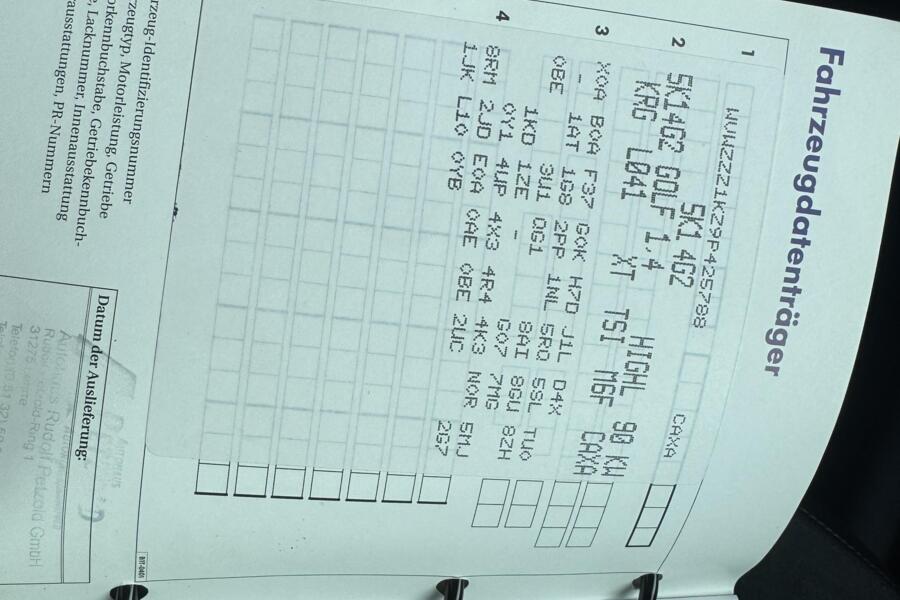 Fahrzeugdatenträger
1 WVWZZZ1KZ9P425788 CAXA
5K1 4G2
2 5K14G2 GOLF 1.4 HIGHL 90 KW
KRG L041 XT TSI M6F CAXA
3 X0A B0A F37 G0K H7D J1L D4X
- 1AT 1G8 2PP 1NL 5RQ 5SL TU0
0BE 3U1 QG1 8AI 8GU 8ZH
1KD 1ZE - G07 7MG
0Y1 4UP 4X3 4R4 4K3 N0R 5MJ
4 8RM 2JD E0A 0AE 0BE 2UC 2G7
1JK L10 0YB
BIT-0401
rzeug-Identifizierungsnummer
rzeugtyp, Motorleistung, Getriebe
orkennbuchstabe, Getriebekennbuch-
e, Lacknummer, Innenausstattung
rausstattungen, PR-Nummern
Datum der Auslieferung:
Autohaus Rudolf Petzold GmbH
Ring 1